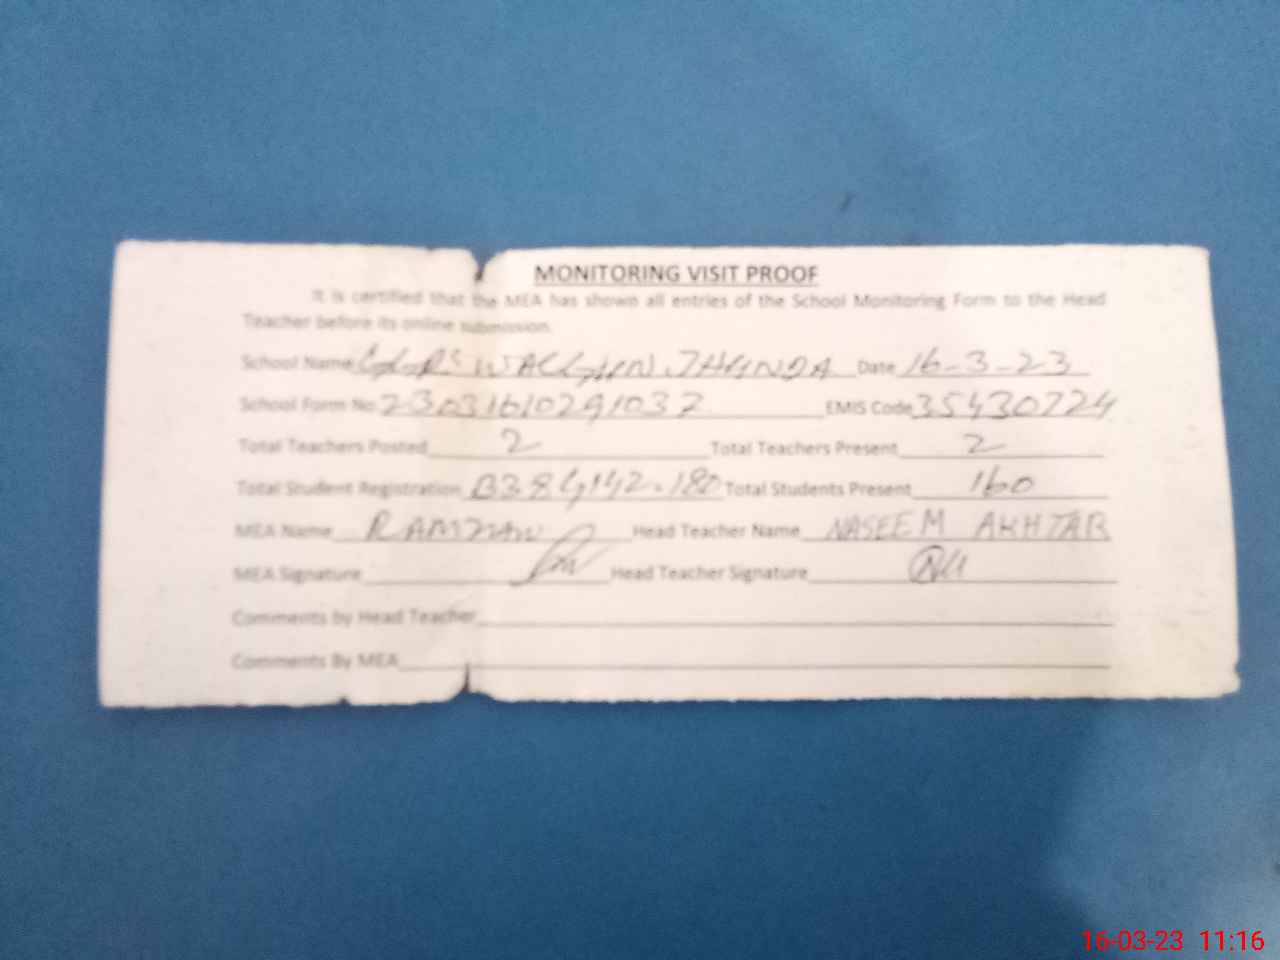 MONITORING VISIT PROOF
It is certified that the MEA has shown all entries of the School Monitoring Form to the Head
Teacher before its online submission.
School Name WALGHUN JHUNDA Date 16-3-23
School Form No 23031610291037 EMIS Code 35430724
Total Teachers Posted 2 Total Teachers Present 2
Total Student Registration B38 G142 = 180 Total Students Present 160
MEA Name RAMZAN Head Teacher Name NASEEM AKHTAR
MEA Signature Head Teacher Signature
Comments by Head Teacher
Comments By MEA
16-03-23 11:16